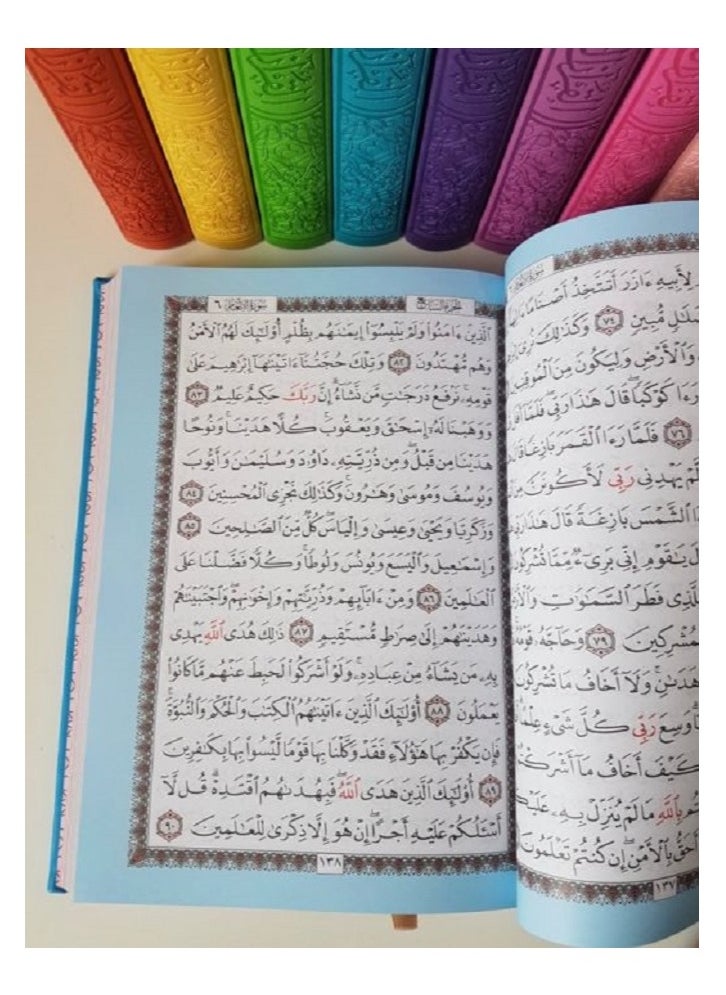 سُورَةُ الأنعام
لِأَبِيهِ ءَازَرَ أَتَتَّخِذُ أَصْنَامًا
ضَلَٰلٍ مُّبِينٍ ٧٤ وَكَذَٰلِكَ نُرِىٓ
وَٱلْأَرْضِ وَلِيَكُونَ مِنَ
رَءَا كَوْكَبًا قَالَ هَٰذَا رَبِّى فَلَمَّآ
٧٦ فَلَمَّا رَءَا ٱلْقَمَرَ بَازِغًا قَالَ
لَّمْ يَهْدِنِى رَبِّى لَأَكُونَنَّ مِنَ
ٱلشَّمْسَ بَازِغَةً قَالَ هَٰذَا رَبِّى
يَٰقَوْمِ إِنِّى بَرِىٓءٌ مِّمَّا تُشْرِكُونَ
لِلَّذِى فَطَرَ ٱلسَّمَٰوَٰتِ
ٱلْمُشْرِكِينَ ٧٩ وَحَآجَّهُۥ قَوْمُهُۥ
هَدَىٰنِ وَلَآ أَخَافُ مَا تُشْرِكُونَ
وَسِعَ رَبِّى كُلَّ شَىْءٍ عِلْمًا
كَيْفَ أَخَافُ مَآ أَشْرَكْتُمْ
بِٱللَّهِ مَا لَمْ يُنَزِّلْ بِهِۦ عَلَيْكُمْ
أَحَقُّ بِٱلْأَمْنِ إِن كُنتُمْ تَعْلَمُونَ
١٣٧
الجزء السابع سُورَةُ الأنعام ٦
ٱلَّذِينَ ءَامَنُوا۟ وَلَمْ يَلْبِسُوٓا۟ إِيمَٰنَهُم بِظُلْمٍ أُو۟لَٰٓئِكَ لَهُمُ ٱلْأَمْنُ
وَهُم مُّهْتَدُونَ ٨٢ وَتِلْكَ حُجَّتُنَآ ءَاتَيْنَٰهَآ إِبْرَٰهِيمَ عَلَىٰ
قَوْمِهِۦ نَرْفَعُ دَرَجَٰتٍ مَّن نَّشَآءُ إِنَّ رَبَّكَ حَكِيمٌ عَلِيمٌ ٨٣
وَوَهَبْنَا لَهُۥٓ إِسْحَٰقَ وَيَعْقُوبَ كُلًّا هَدَيْنَا وَنُوحًا
هَدَيْنَا مِن قَبْلُ وَمِن ذُرِّيَّتِهِۦ دَاوُۥدَ وَسُلَيْمَٰنَ وَأَيُّوبَ
وَيُوسُفَ وَمُوسَىٰ وَهَٰرُونَ وَكَذَٰلِكَ نَجْزِى ٱلْمُحْسِنِينَ ٨٤
وَزَكَرِيَّا وَيَحْيَىٰ وَعِيسَىٰ وَإِلْيَاسَ كُلٌّ مِّنَ ٱلصَّٰلِحِينَ ٨٥
وَإِسْمَٰعِيلَ وَٱلْيَسَعَ وَيُونُسَ وَلُوطًا وَكُلًّا فَضَّلْنَا عَلَى
ٱلْعَٰلَمِينَ ٨٦ وَمِنْ ءَابَآئِهِمْ وَذُرِّيَّٰتِهِمْ وَإِخْوَٰنِهِمْ وَٱجْتَبَيْنَٰهُمْ
وَهَدَيْنَٰهُمْ إِلَىٰ صِرَٰطٍ مُّسْتَقِيمٍ ٨٧ ذَٰلِكَ هُدَى ٱللَّهِ يَهْدِى
بِهِۦ مَن يَشَآءُ مِنْ عِبَادِهِۦ وَلَوْ أَشْرَكُوا۟ لَحَبِطَ عَنْهُم مَّا كَانُوا۟
يَعْمَلُونَ ٨٨ أُو۟لَٰٓئِكَ ٱلَّذِينَ ءَاتَيْنَٰهُمُ ٱلْكِتَٰبَ وَٱلْحُكْمَ وَٱلنُّبُوَّةَ
فَإِن يَكْفُرْ بِهَا هَٰٓؤُلَآءِ فَقَدْ وَكَّلْنَا بِهَا قَوْمًا لَّيْسُوا۟ بِهَا بِكَٰفِرِينَ
٨٩ أُو۟لَٰٓئِكَ ٱلَّذِينَ هَدَى ٱللَّهُ فَبِهُدَىٰهُمُ ٱقْتَدِهْ قُل لَّآ
أَسْـَٔلُكُمْ عَلَيْهِ أَجْرًا إِنْ هُوَ إِلَّا ذِكْرَىٰ لِلْعَٰلَمِينَ ٩٠
١٣٨